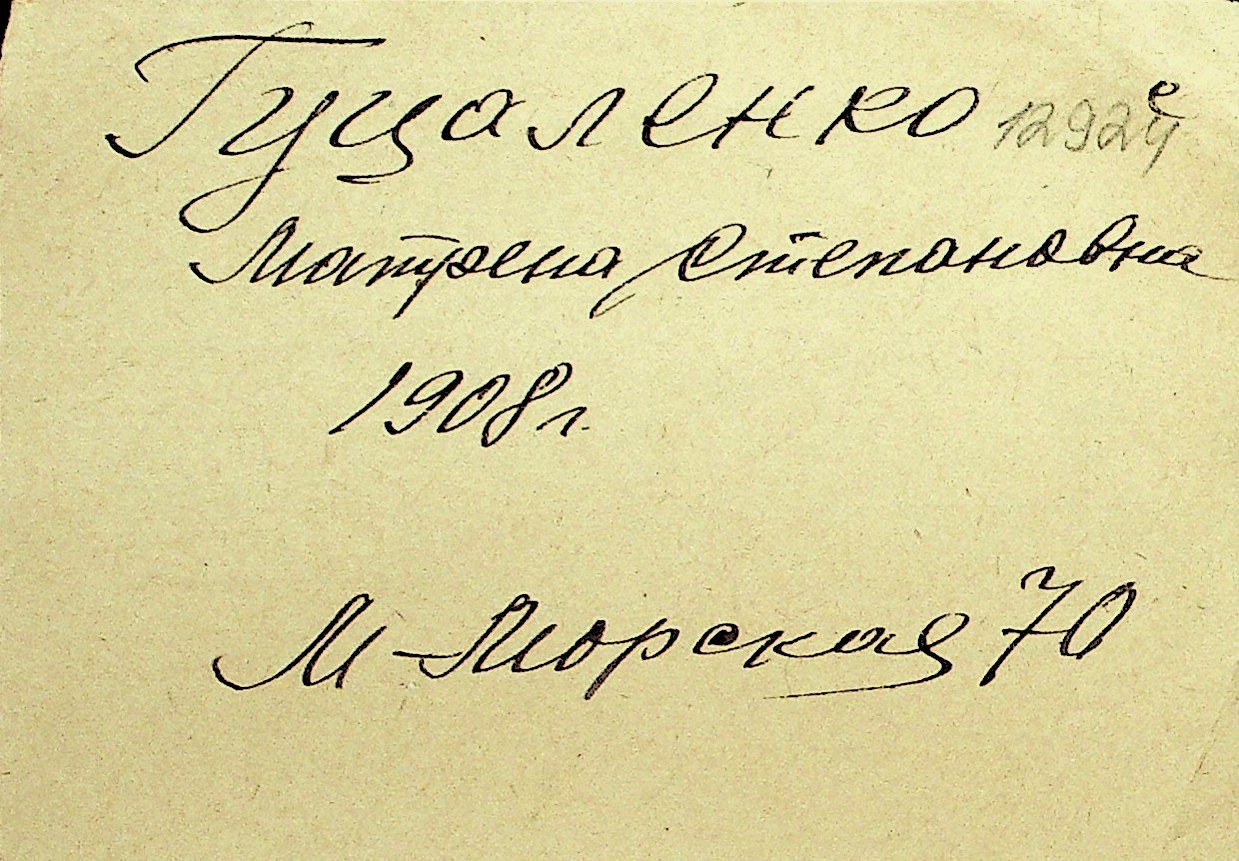 Гуцаленко 12924
Матрена Степановна
1908г.
М-Морская 70